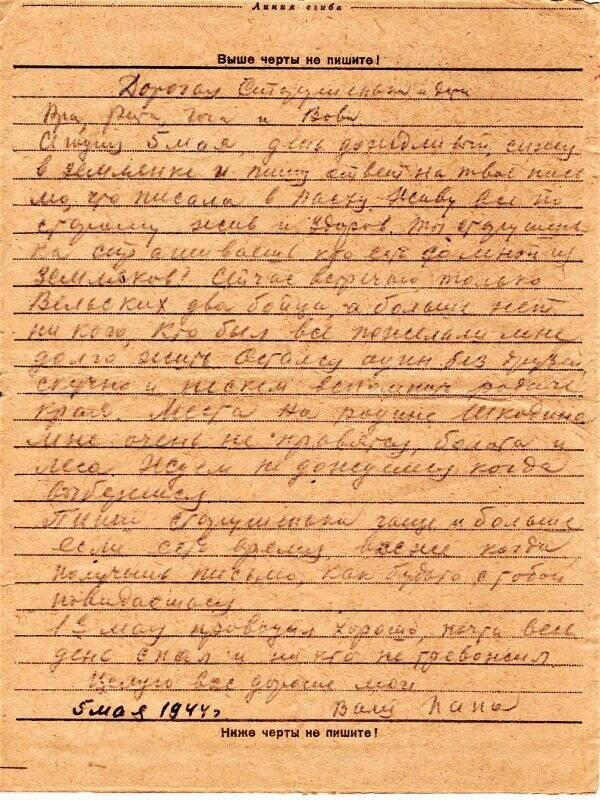 Линия сгиба
Выше черты не пишите!
Дорогая Старушенька и дети
Ира, Рита, Гога и Вова
Сегодня 5 мая, день дождливый, сижу
в землянке и пишу ответ на твое пись
мо, что писала в Пасху. Живу все по
старому жив и здоров. Ты старушень
ка спрашиваешь кто есть со мной из
земляков? Сейчас встречаю только
Вельских два бойца, а больше нет
ни кого, кто был все пожелали мне
долго жить. Остался один без друзей
скучно и не с кем вспомнить родные
края. Места на родине
мне очень не нравятся, болота и
леса. Ждем не дождемся когда
выберемся
Пиши старушенька чаще и больше
если есть время, когда
получишь письмо, как будто с тобой
повидаешься
1е мая провел хорошо, почти весь
день спал и ни кто не тревожил
Целую вас дорогие мои
5 мая 1944г Ваш Папа
Ниже черты не пишите!